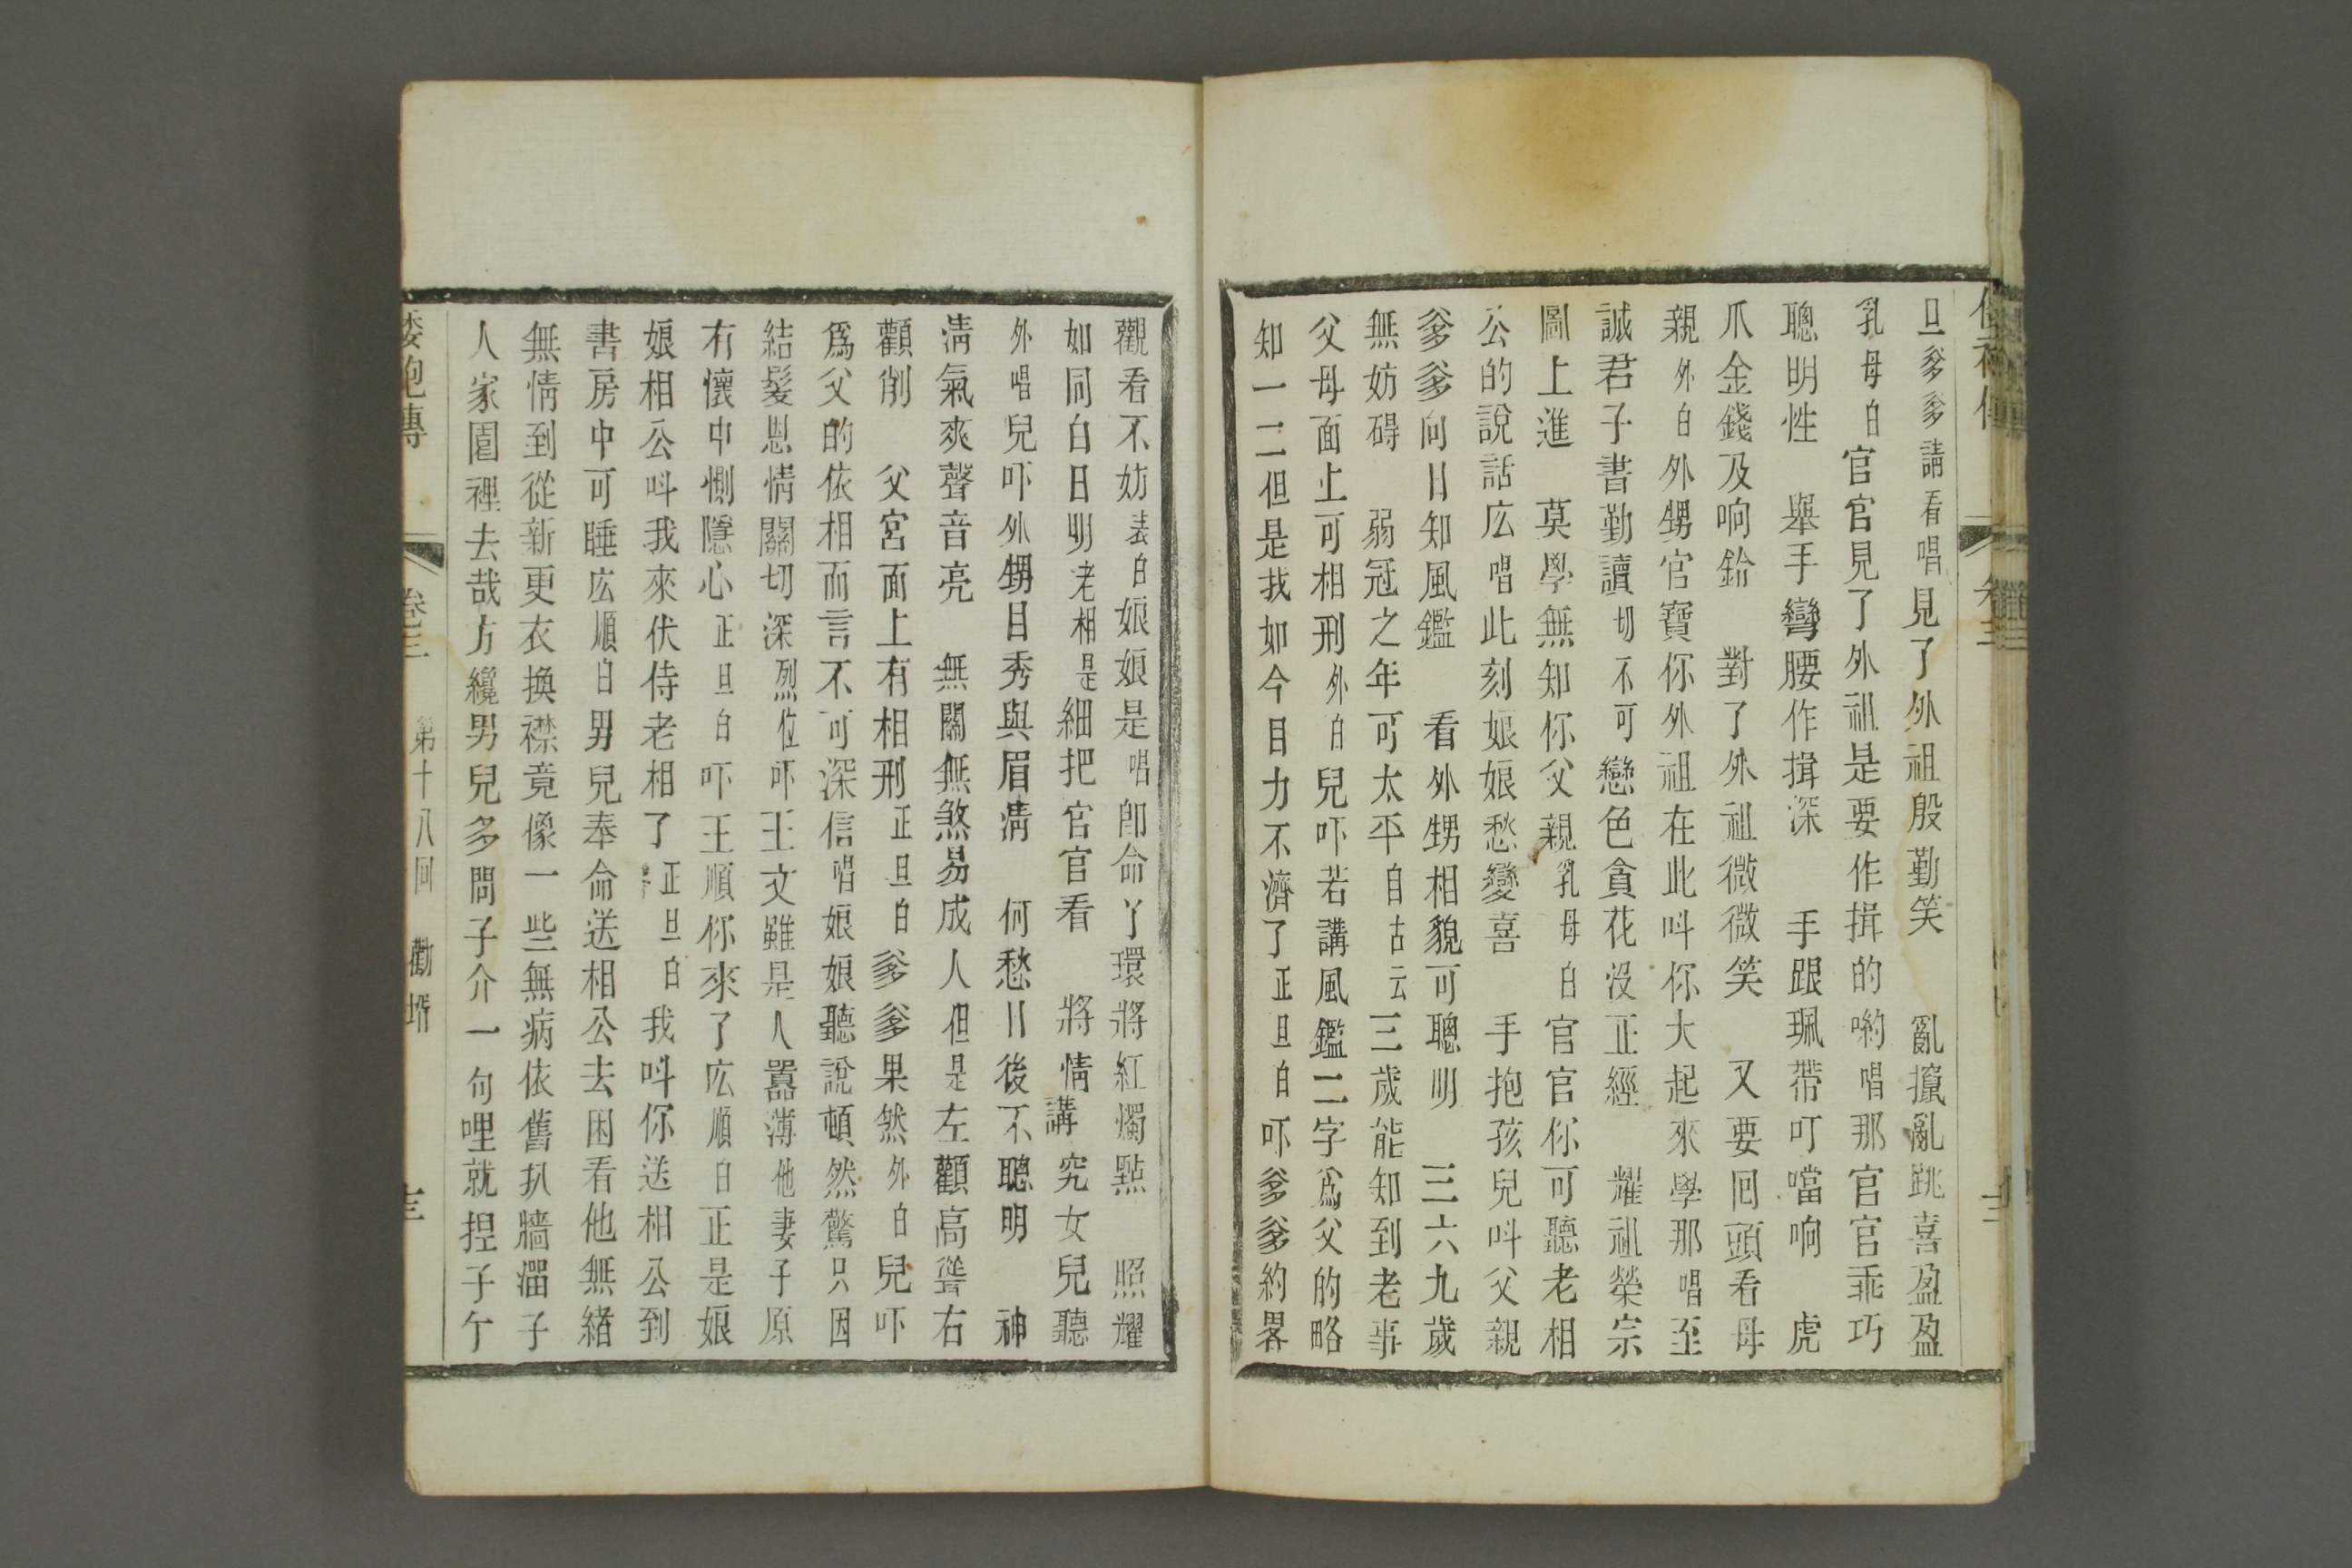 旦爹爹請看唱見了外祖殷勤笑　亂攛亂跳喜盈盈
乳母白官官見了外祖是要作揖的喲唱那官官乖巧
聰明性　舉手彎腰作揖深　手跟珮帶叮噹响　虎
爪金錢及响鈴　對了外祖微微笑　又要囘頭看母
親外白外甥官寶你外祖在此呌你大起來學那唱至
誠君子書勤讀切不可戀色貪花没正經　耀祖榮宗
圖上進　莫學無知你父親乳母白官官你可聽老相
公的說話庅唱此刻娘娘愁變喜　手抱孩兒呌父親
爹爹向日知風鑑　看外甥相貌可聰明　三六九歲
無妨碍　弱冠之年可太平自古云三歲能知到老事
父母面上可相刑外白兒吓若講風鑑二字爲父的略
知一二但是我如今目力不濟了正旦白吓爹爹約畧
觀看不妨表白娘娘是唱卽命丫環將紅燭點　照耀
如同白日明老相是細把官官看　將情講究女兒聽
外唱兒吓外甥目秀與眉清　何愁日後不聰明　神
清氣爽聲音亮　無關無煞易成人但是左顴高聳右
顴削　父宮面上有相刑正旦白爹爹果然外白兒吓
爲父的依相而言不可深信唱娘娘聽說頓然驚只因
結髮恩情關切深烈位吓王文雖是人囂薄他妻子原
有懷中惻隱心正旦白吓王順你來了庅順白正是娘
娘相公呌我來伏侍老相了正旦白我呌你送相公到
書房中可睡庅順白男兒奉命送相公去困看他無緒
無情到從新更衣換襟竟像一些無病依舊扒牆溜子
人家園裡去哉方纔男兒多問子介一句哩就捏子个
倭袍傳　卷三　第十八回　勸壻